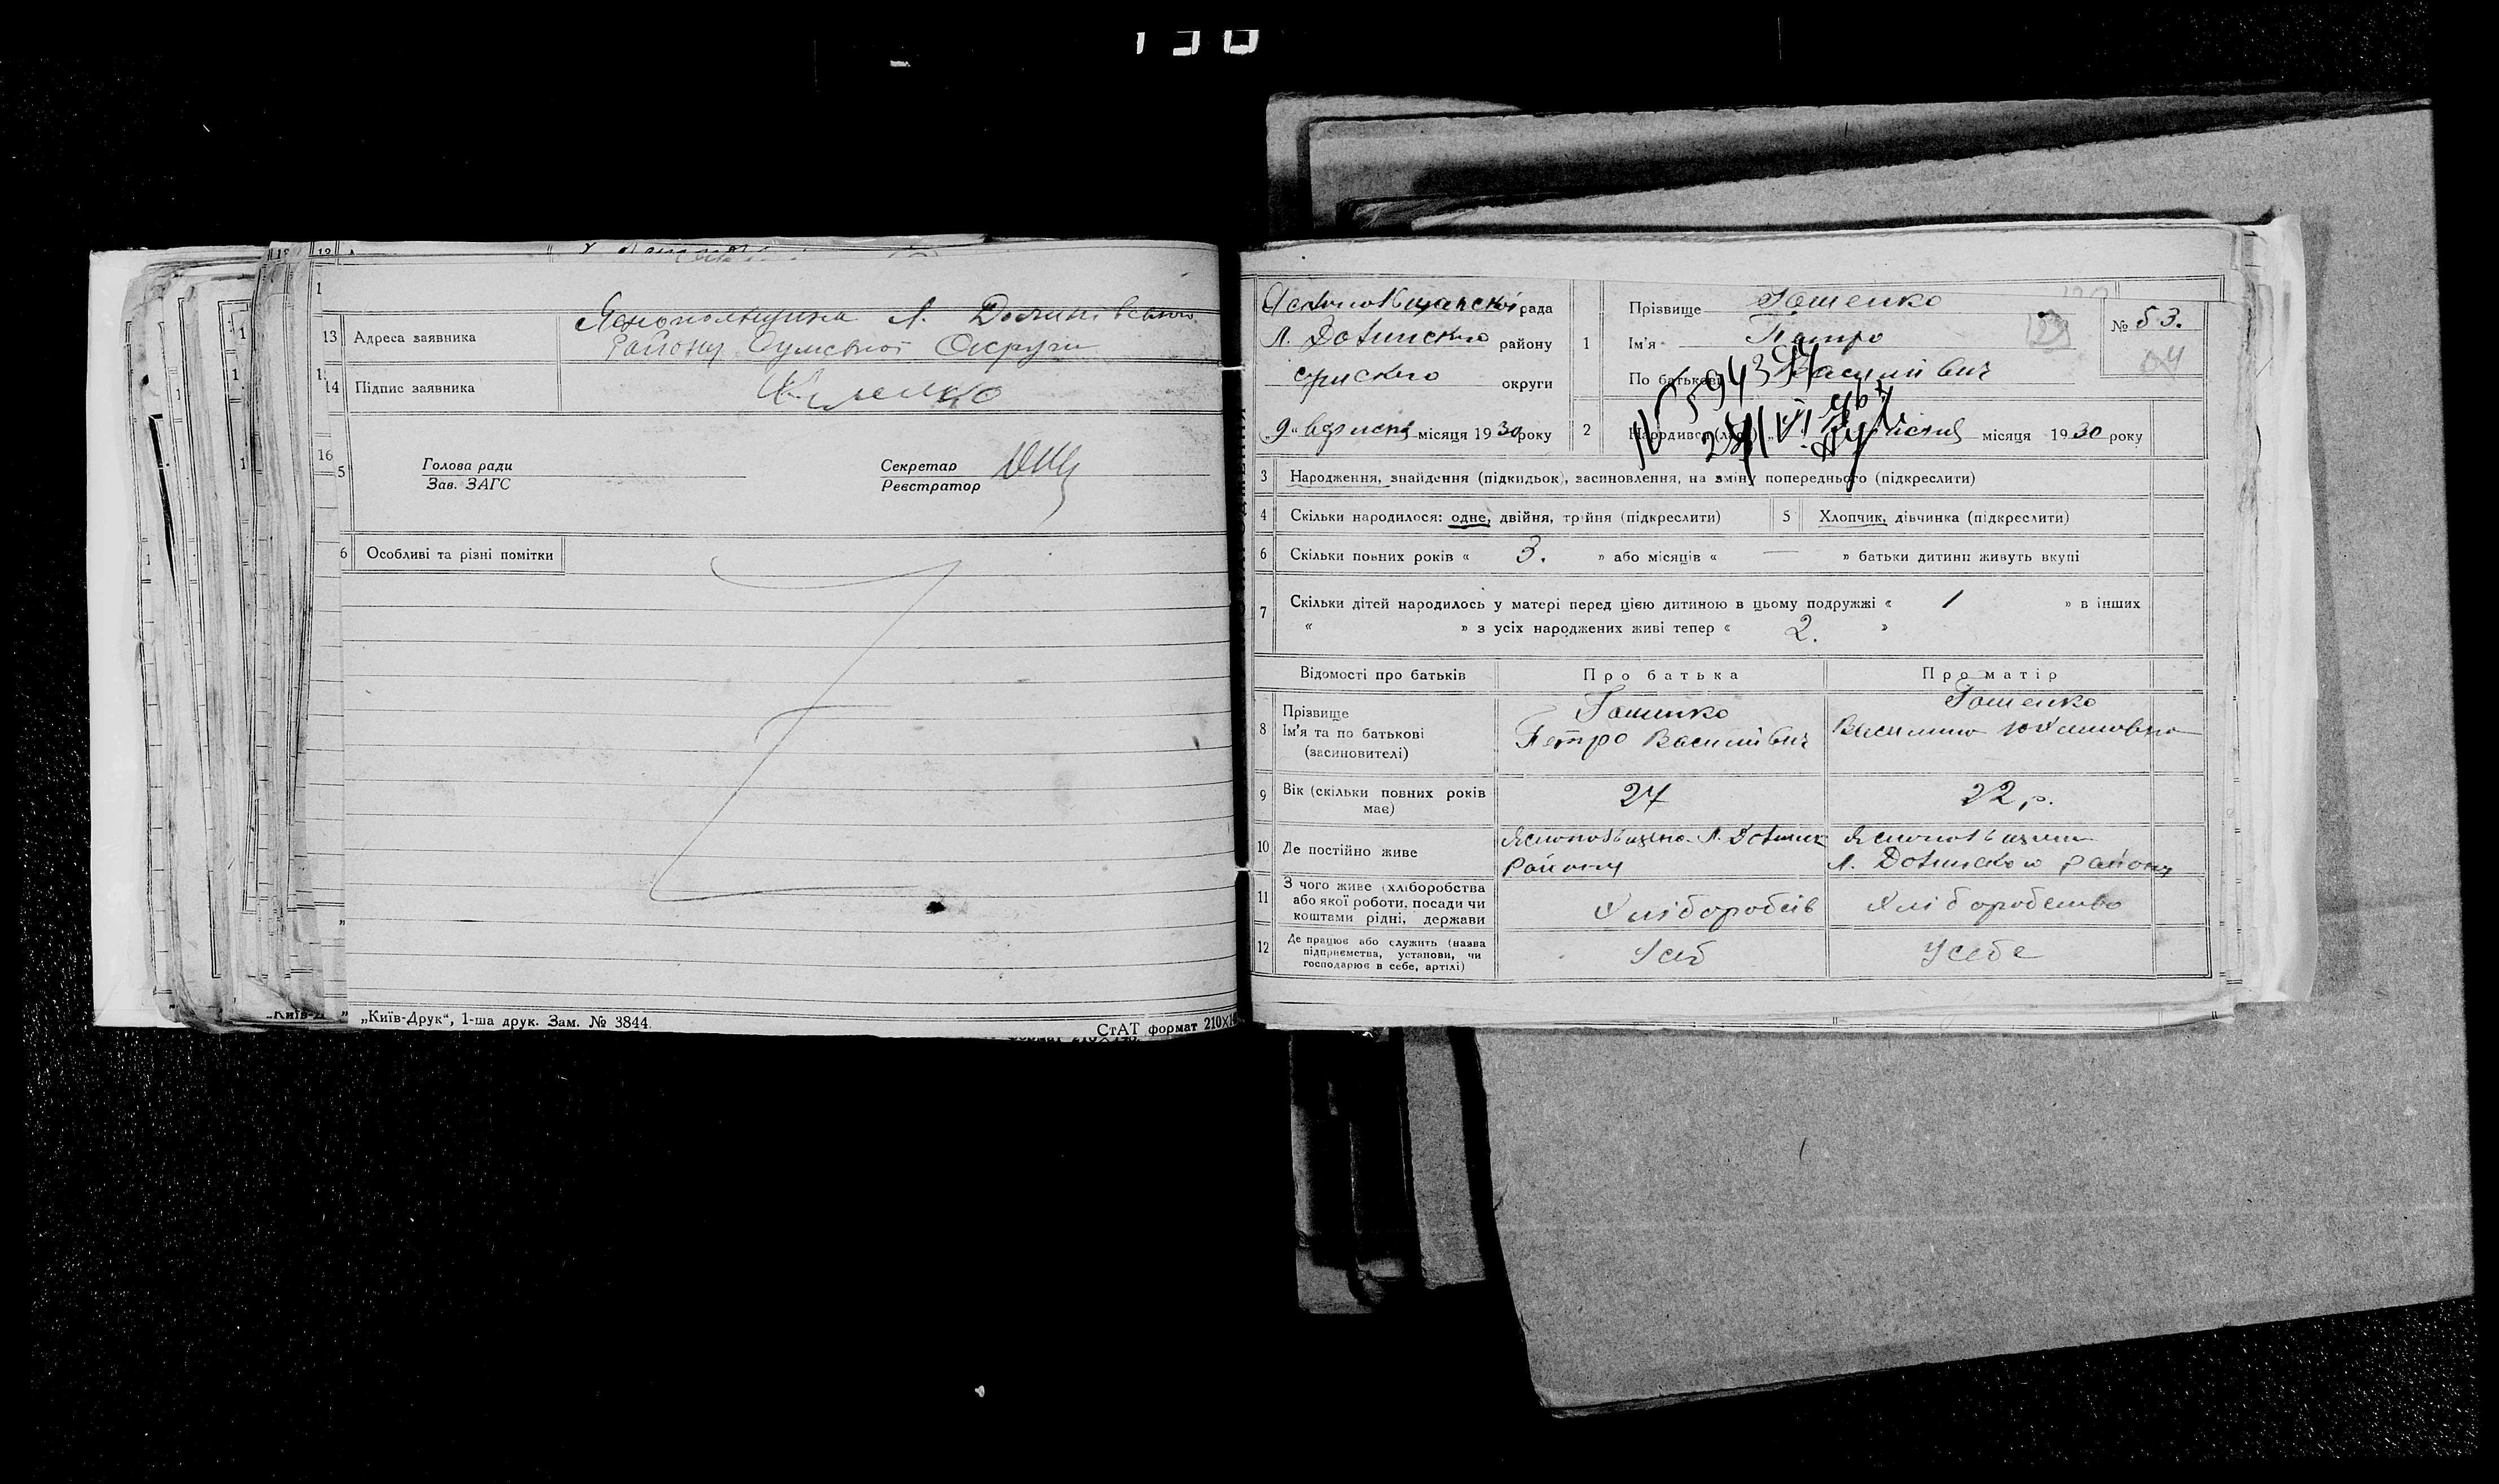 13 Адреса заявника Яснопольщина Л. Долинського
району Сумської Округи
14 Підпис заявника
Голова ради
Зав. ЗАГС
Секретар
Реєстратор
6 Особливі та різні помітки
„Київ-Друк“, 1-ша друк. Зам. № 3844.
СтАТ формат 210×1
рада
Л. Долинського району
округи
„9“ місяця 1930 року
1 Прізвище Гошенко
Ім'я Петро
По батькові Василівич
№ 53.
2 Народився місяця 1930 року
3 Народження, знайдення (підкидьок), засиновлення, на зміну попереднього (підкреслити)
4 Скільки народилося: одне, двійня, трійня (підкреслити) 5 Хлопчик, дівчинка (підкреслити)
6 Скільки повних років « 3. » або місяців « — » батьки дитини живуть вкупі
7 Скільки дітей народилось у матері перед цією дитиною в цьому подружжі « 1 » в інших
« » з усіх народжених живі тепер « 2. »
Відомості про батьків Про батька Про матір
8 Прізвище
Ім'я та по батькові
(засиновителі)
Гошенко
Петро Василівич
Гошенко
9 Вік (скільки повних років
має)
27
22 р.
10 Де постійно живе
Яснопольщина Л. Долинск
району
Яснопольщина
Л. Долинского району
11 З чого живе (хліборобства
або якої роботи, посади чи
коштами рідні, держави
Хліборобств
Хліборобство
12 Де працює або служить (назва
підприємства, установи, чи
господарює в себе, артілі)
У себ
У себе